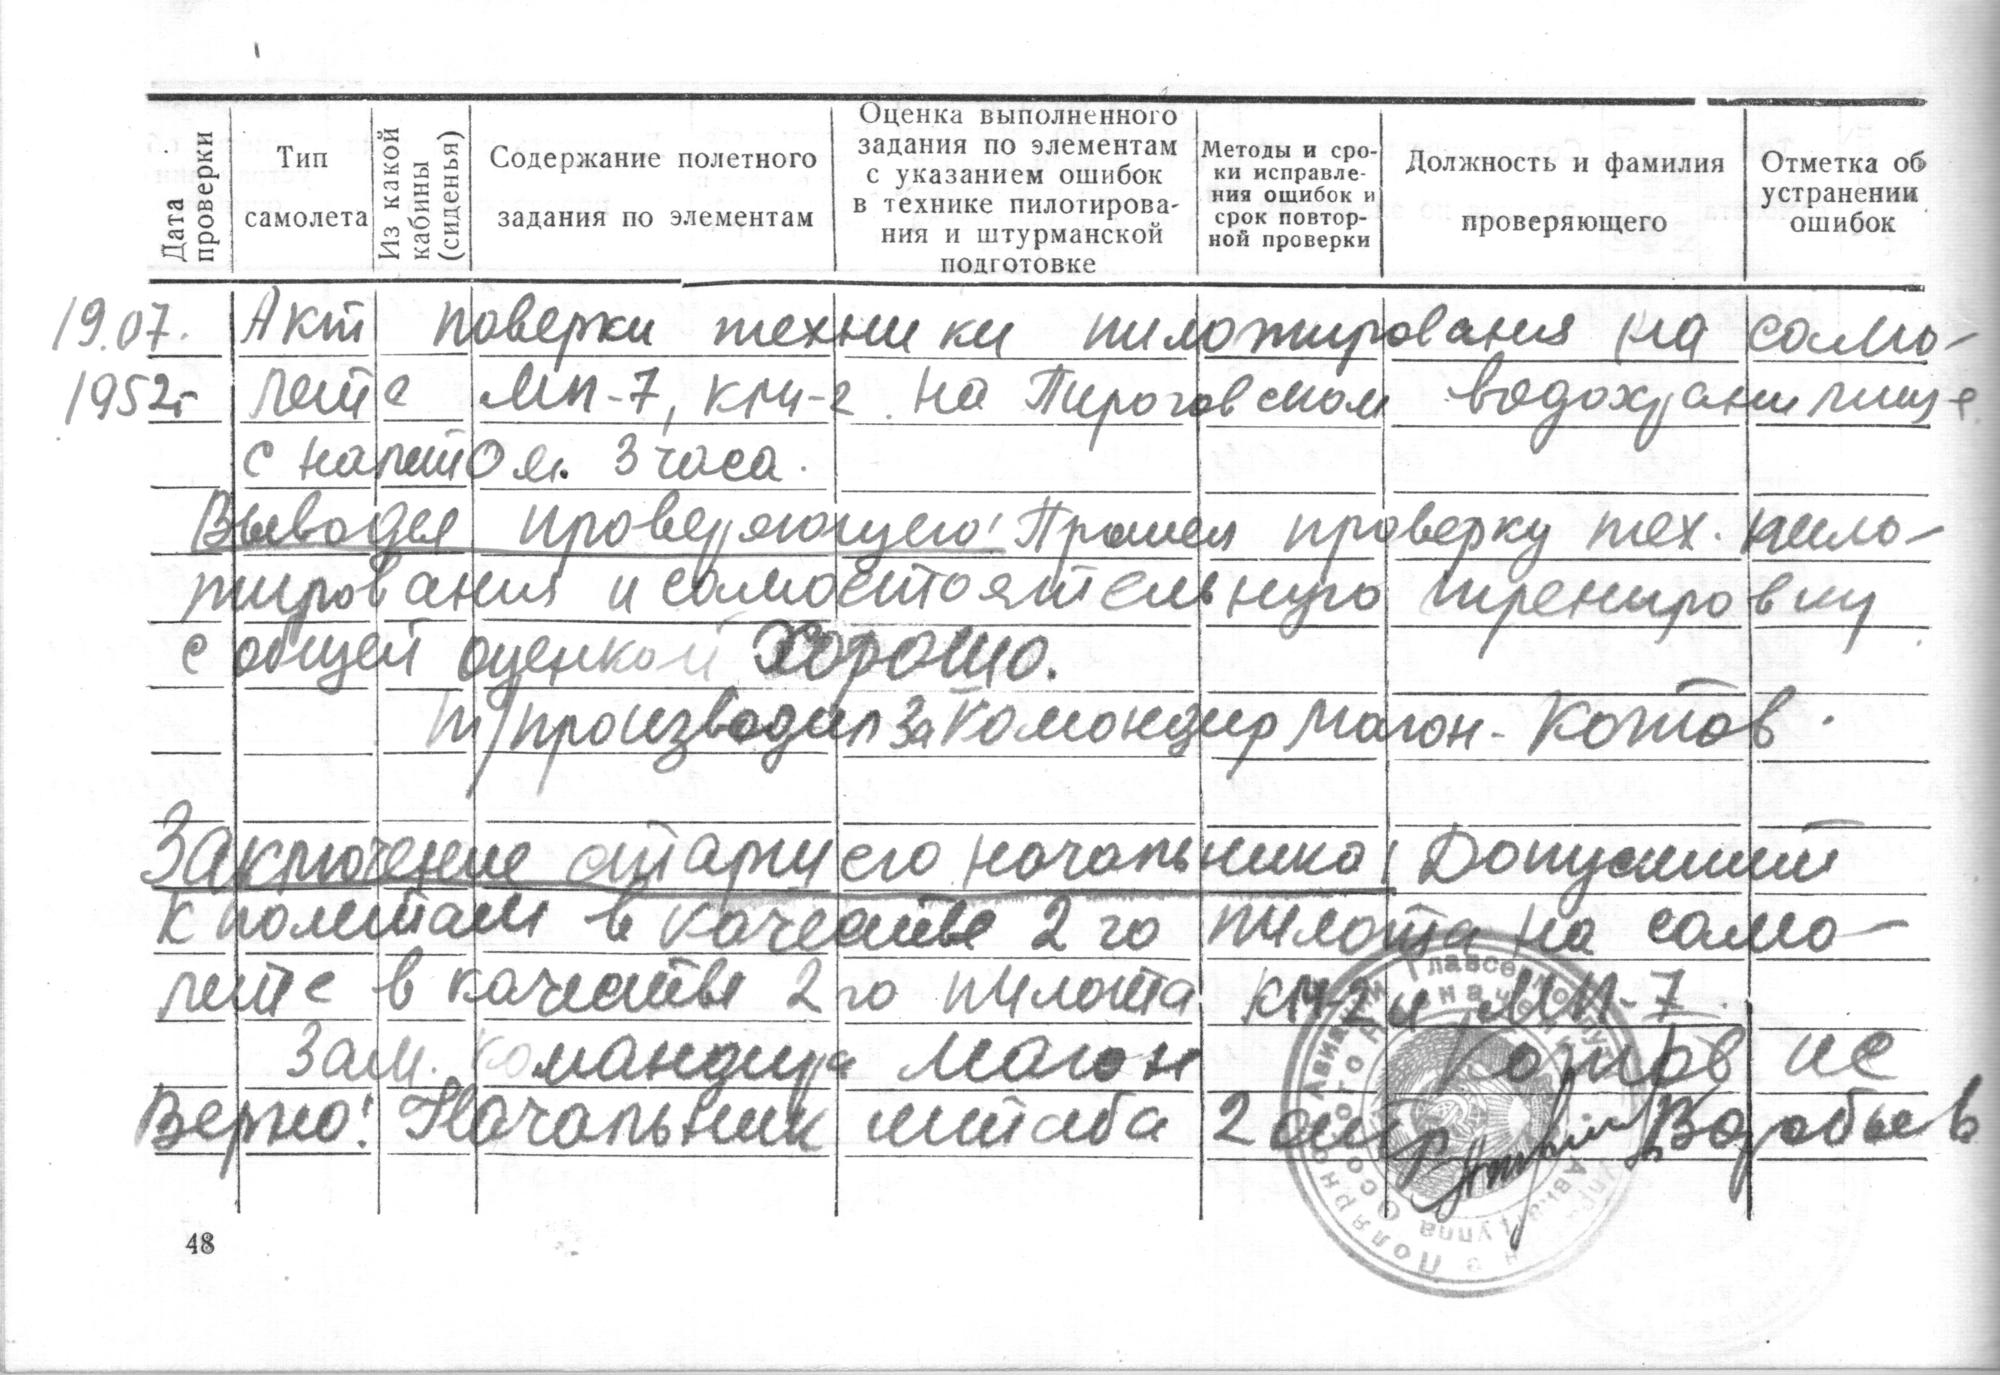 Дата проверки
Тип самолета
Из какой кабины (сиденья)
Содержание полетного задания по элементам
Оценка выполненного задания по элементам с указанием ошибок в технике пилотирова-ния и штурманской подготовке
Методы и сро-ки исправле-ния ошибок и срок повтор-ной проверки
Должность и фамилия проверяющего
Отметка об устранении ошибок
19.07. Акт поверки техники пилотирования на само-
1952г лете МП-7, КМ-2. На Пироговском водохранилище
с налетом. 3 часа.
Выводы проверяющего: Прошел проверку тех. пило-
тирования и самостоятельную тренировку
с общей оценкой хорошо.
т/производил За Командир Магон-Котов.
Заключение старшего начальника: Допустит
к полетам в качестве 2го пилота на само-
лете в качестве 2го пилота КМ-2 и МП-7.
Зам. командира Магон Котов ис
Верно! Начальник штаба 2 Воробьев
48